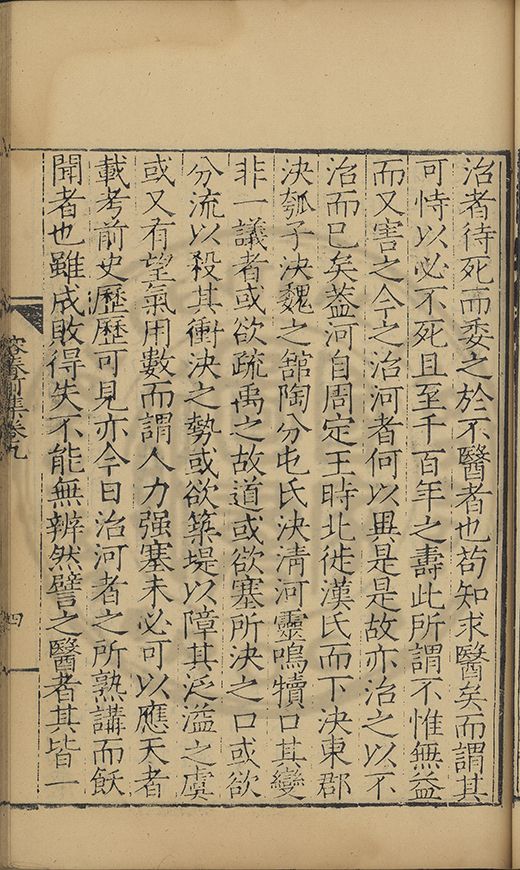 治者待死而委之於不醫者也苟知求醫矣而謂其
可恃以必不死且至千百年之壽此所謂不惟無益
而又害之今之治河者何以異是是故亦治之以不
治而已矣葢河自周定王時北徙漢氏而下決東郡
決瓠子決魏之館陶分屯氏決淸河靈鳴犢口其變
非一議者或欲疏禹之故道或欲塞所決之口或欲
分流以殺其衝決之勢或欲築堤以障其泛溢之虞
或又有望氣用數而謂人力强塞未必可以應天者
載考前史歷歷可見亦今日治河者之所熟講而飫
聞者也雖成敗得失不能無辨然譬之醫者其皆一
容春前集卷九
四